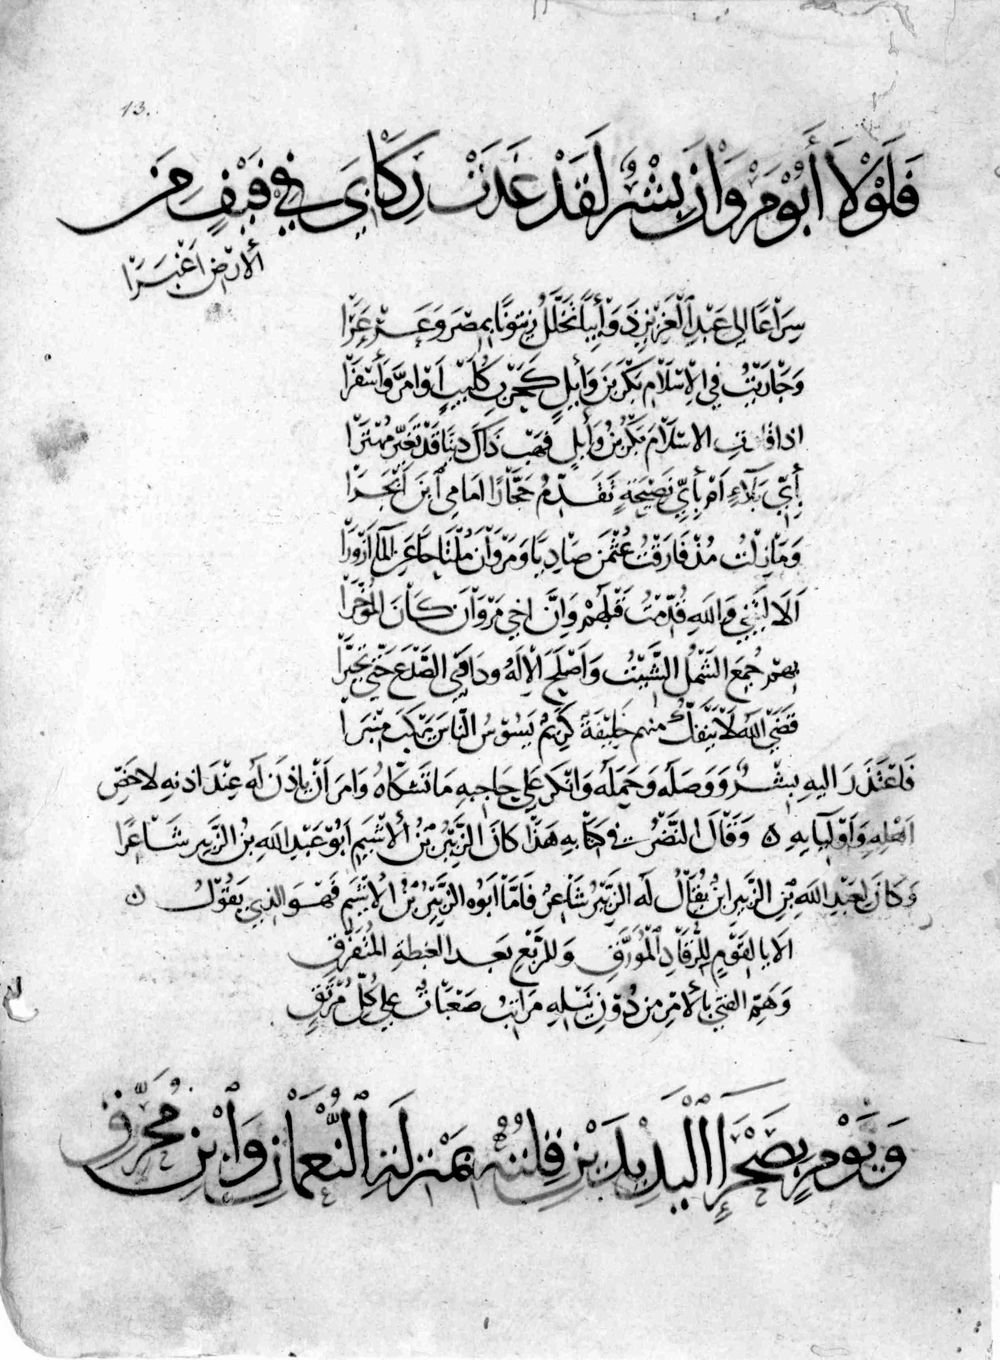 13.
فَلَوْلَا أَبُوْ مَرْوَانَ بِشْرٌ لَقَدْ غَدَتْ رِكَابِيَ فِي فَيْفٍ مِنَ
الأرْضِ أَغْبَرَا
سِرَاعًا إِلَى عَبْدِ الْعَزِيْزِ دَوَائِبًا تَخَلَّلُ زَيْتُونًا بِمِصْرَ وَعَرْعَرَا
وَحَارَبْتُ فِي الْإِسْلَامِ بَكْرَ بْنَ وَائِلٍ كَحَرْبِ كُلَيْبٍ أَوْ أَمَرَّ وَأَسْفَرَا
اذا قادت الاسْلَامَ بَكْرُ بْنُ وَائِلٍ فَهَبْ ذَاكَ دِينًا قَدْ تَغَيَّرَ مُهْتَرَا
بِأَيِّ بَلَاءٍ أَمْ بِأَيِّ نَصِيْحَةٍ تُقَدِّمُ حَجَّارًا أَمَامِي ابْنَ أَبْجَرَا
وَمَا زِلْتُ مُذْ فَارَقْتُ عُثْمَنَ صَادِيًا وَمَرْوَانَ مُلْتَاحًا عَنِ الْمَاءِ أَزْوَرَا
أَلَا لَيْتَنِي وَاللهِ قُدِّمْتُ قَبْلَهُمْ وَأَنَّ أخِي مَرْوَانَ كَانَ الْمُؤَخَّرَا
بِهِمْ جُمِعَ الشَّمْلُ الشَّتِيْتُ وَأَصْلَحَ الْإِلَهُ ودَاوَى الصَّدْعَ حَتَّى تَجَبَّرَا
قَضَى اللهُ لَا يَنْفَكُّ مِنْهُم خَلِيْفَةٌ كَرِيْمٌ يَسُوْسُ النَّاسَ يَرْكَبُ مِنْبَرَا
فَاعْتَذَرَ اليه بِشْرٌ وَوَصَلَهُ وَحَمَلَهُ وَانْكَرَ عَلَى حَاجِبِهِ مَا تَشَكَّاهُ وَامَرَ أنْ يَاْذَنَ لَهُ عِنْدَ اذنهِ لاخَصِّ
اهْلِهِ وَاوْلِيَايِهِ ٥ وَقَالَ النَّضْرُ في كتَابِهِ هَذَا كانَ الزَّبِيْرُ بْنُ الأَشْيَمِ ابُوْ عَبْدِ اللهِ بْنِ الزَّبِيْرِ شَاعِرًا
وَكَانَ لِعَبْدِ اللهِ بْنِ الزَّبِيْرِ ابْنٌ يُقَالُ لَهُ الزَّبِيْرُ شَاعِرٌ فَأَمَّا ابُوهُ الزَّبِيْرُ بْنُ الْأَشْيَمِ فَهْوَ الذِي يَقُوْلُ ٥
الا يَا لَقَوْمٍ لِلرُّقَادِ الْمُؤَرَّقِ وَلِلرَّبْعِ بَعْدَ الْغِبْطَةِ الْمُتَفَرِّقِ
وَهَمِّ الْفَتَى بِالأَمْرِ مِنْ دُوْنِ نَيْلِهِ مَرَاتِبُ صَعْبَاتٌ عَلَى كُلِّ مُرْتَقٍ
وَيَوْمٍ بِصَحْرَاءِ الْبَدِيْدَيْنِ قِلْتُهُ بِمَنْزِلَةِ النُّعْمَانِ وَابْنِ مُحَرِّقِ